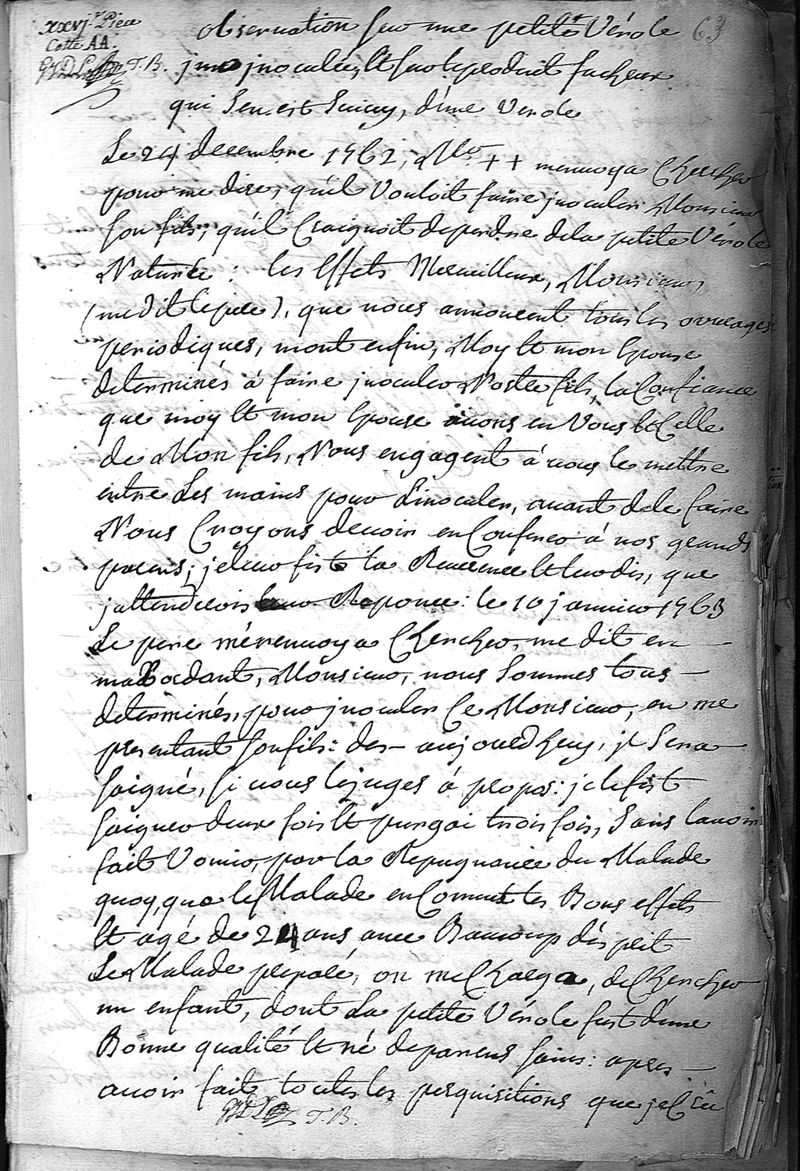 xxvj.e Piece
Cotte AA.
T. B.
63
observation sur une petite Vérole
jnoculée, et sur le produit facheux
qui s'en est suivy, d'une Verole
Le 24 decembre 1762, Mr ++ menvoya Chercher
pour me dire, qu'il Vouloit faire jnoculer Monsieur
son fils, qu'il Craignoit de perdre de la petite Vérole
Naturele: les Effets Merveilleux, Monsieur,
(me dit le pere), que nous annoncent tous les ouvrages
periodiques, m'ont enfin, Moy et mon Epouse
determinés à faire jnoculer Nostre fils, la Confiance
que moy et mon Epouse avons en Vous et Celle
de Mon fils, Nous engagent à vous le mettre
entre Les mains pour L'inoculer, avant de le faire
Nous Croyons devoir en Conferer à nos grands
parens; je leur fist la Reverence et leur dis, que
j'attenderois leur Reponce: le 10 janvier 1763
Le pere m'érenvoya Chercher, me dit en
m'abordant, Monsieur, nous sommes tous
determinés, pour jnoculer Ce Monsieur, en me
presentant son fils: des aujourdhuy, il sera
saigné, si vous le juges à propos: je le fist
saigner deux fois et purgai trois fois, sans l'avoir
fait Vomir, par la Repugnance du Malade
quoy, que le Malade en Connut les Bons effets
et agé de 24 ans avec Baucoup d'esprit
Le Malade preparé, on me Chargea, de Chercher
un enfant, dont La petite Vérole fust d'une
Bonne qualité et né de parens sains: apres
avoir fait toutes les perquisitions que je Crû
T. B.